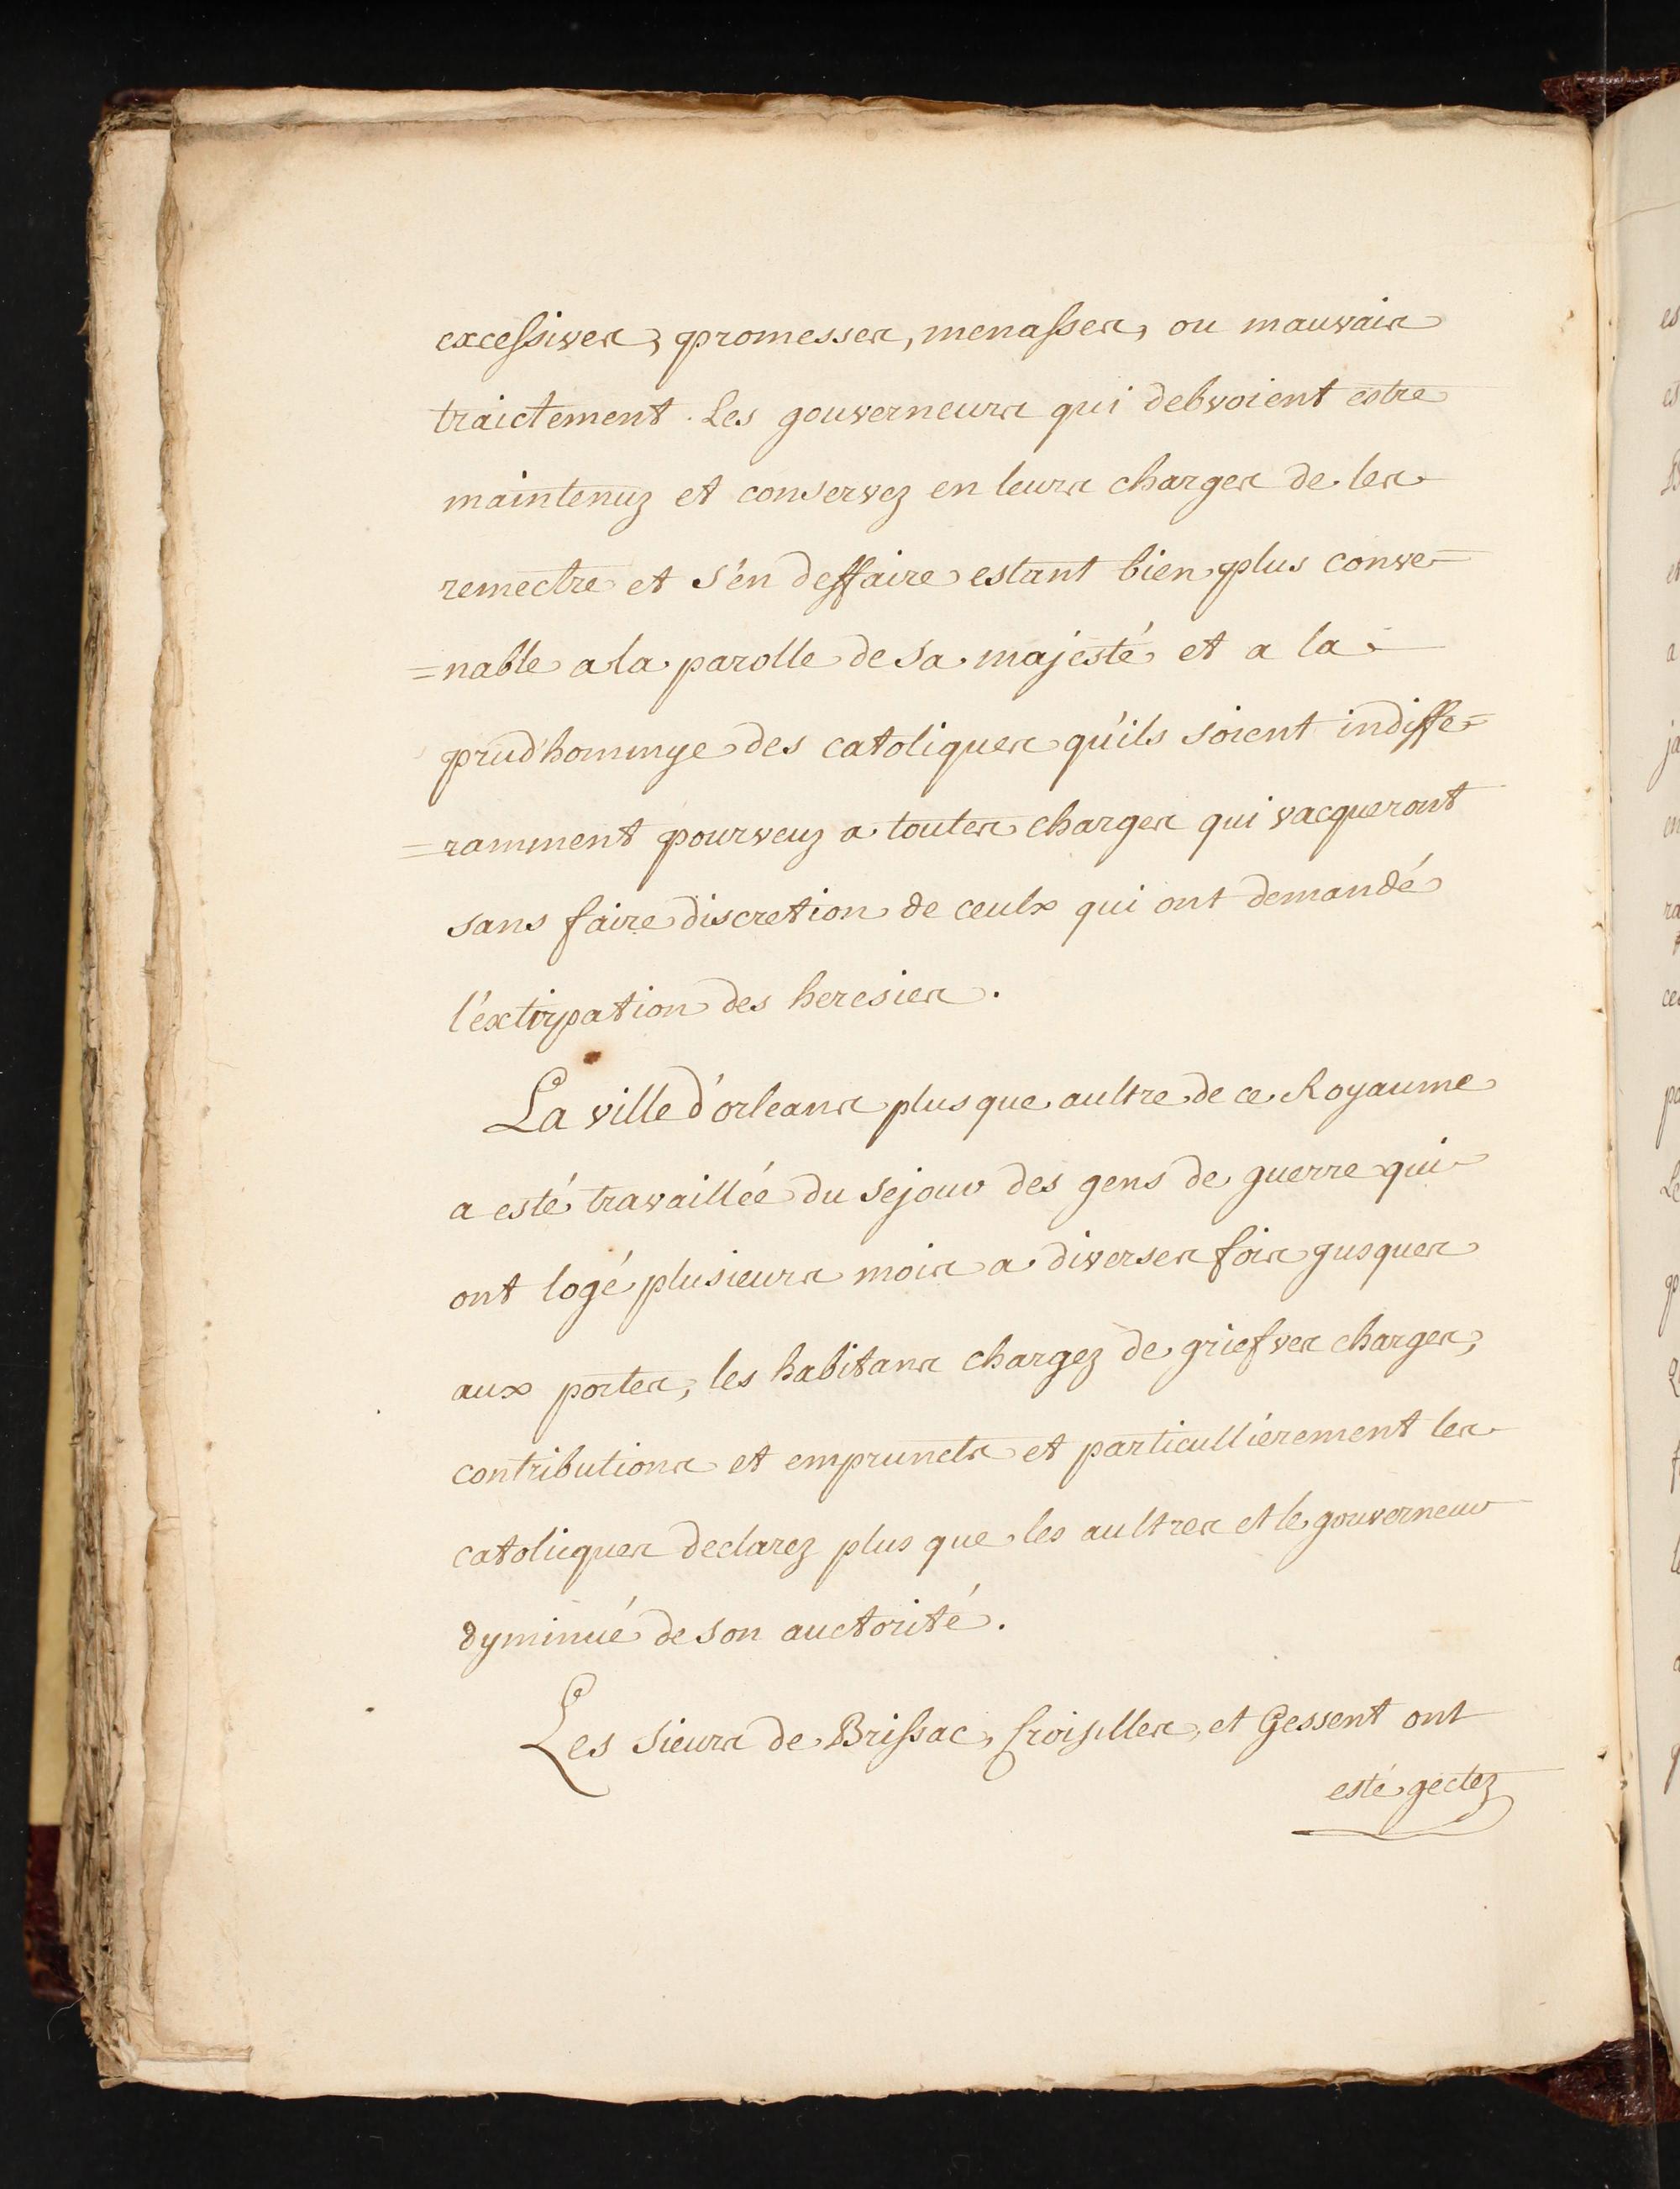 excessives, promesses, menasses, ou mauvais
traictement. Les gouverneurs qui debvoient estre
maintenuz et conservez en leurs charges de les
remectre et s'en deffaire estant bien plus conve=
=nable a la parolle de sa majesté et a la
prud'hommye des catoliques qu'ils soient indiffe=
=ramment pourveuz a toutes charges qui vacqueront
sans faire discretion de ceulx qui ont demandé
l'éxtirpation des heresies.
La ville d'orleans plus que aultre de ce Royaume
a esté travaillée du sejour des gens de guerre qui
ont logé plusieurs mois a diverses fois gusques
aux portes, les habitans chargez de griefves charges,
contributions et empruncts et particullierement les
catolicques declarez plus que les aultres et le gouverneur
dyminué de son auctorité.
Les sieurs de Brissac, Croisilles, et Gessent ont
esté gectez